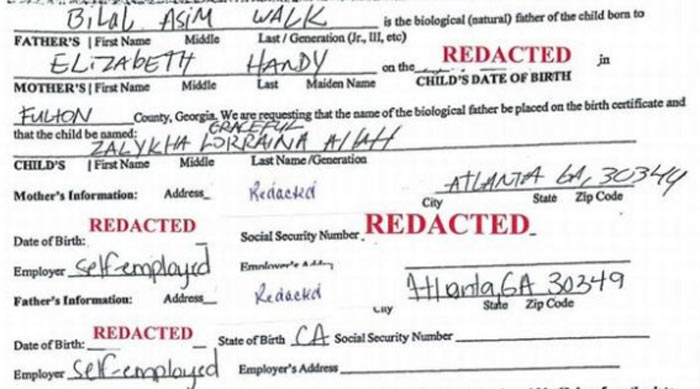 BILAL ASIM WALK is the biological (natural) father of the child born to
FATHER'S | First Name Middle Last / Generation (Jr., III, etc)
ELIZABETH HANDY on the REDACTED in
MOTHER'S | First Name Middle Last Maiden Name CHILD'S DATE OF BIRTH
FULTON County, Georgia. We are requesting that the name of the biological father be placed on the birth certificate and
that the child be named: GRACEFUL
ZALYKHA LORRAINA Allah
CHILD'S | First Name Middle Last Name /Generation
Mother's Information: Address Redacted ATLANTA GA, 30344
City State Zip Code
REDACTED
Date of Birth: Social Security Number REDACTED
Employer self-employed Employer's
Father's Information: Address Redacted Atlanta, GA 30349
City State Zip Code
REDACTED
Date of Birth: State of Birth CA Social Security Number
Employer self-employed Employer's Address